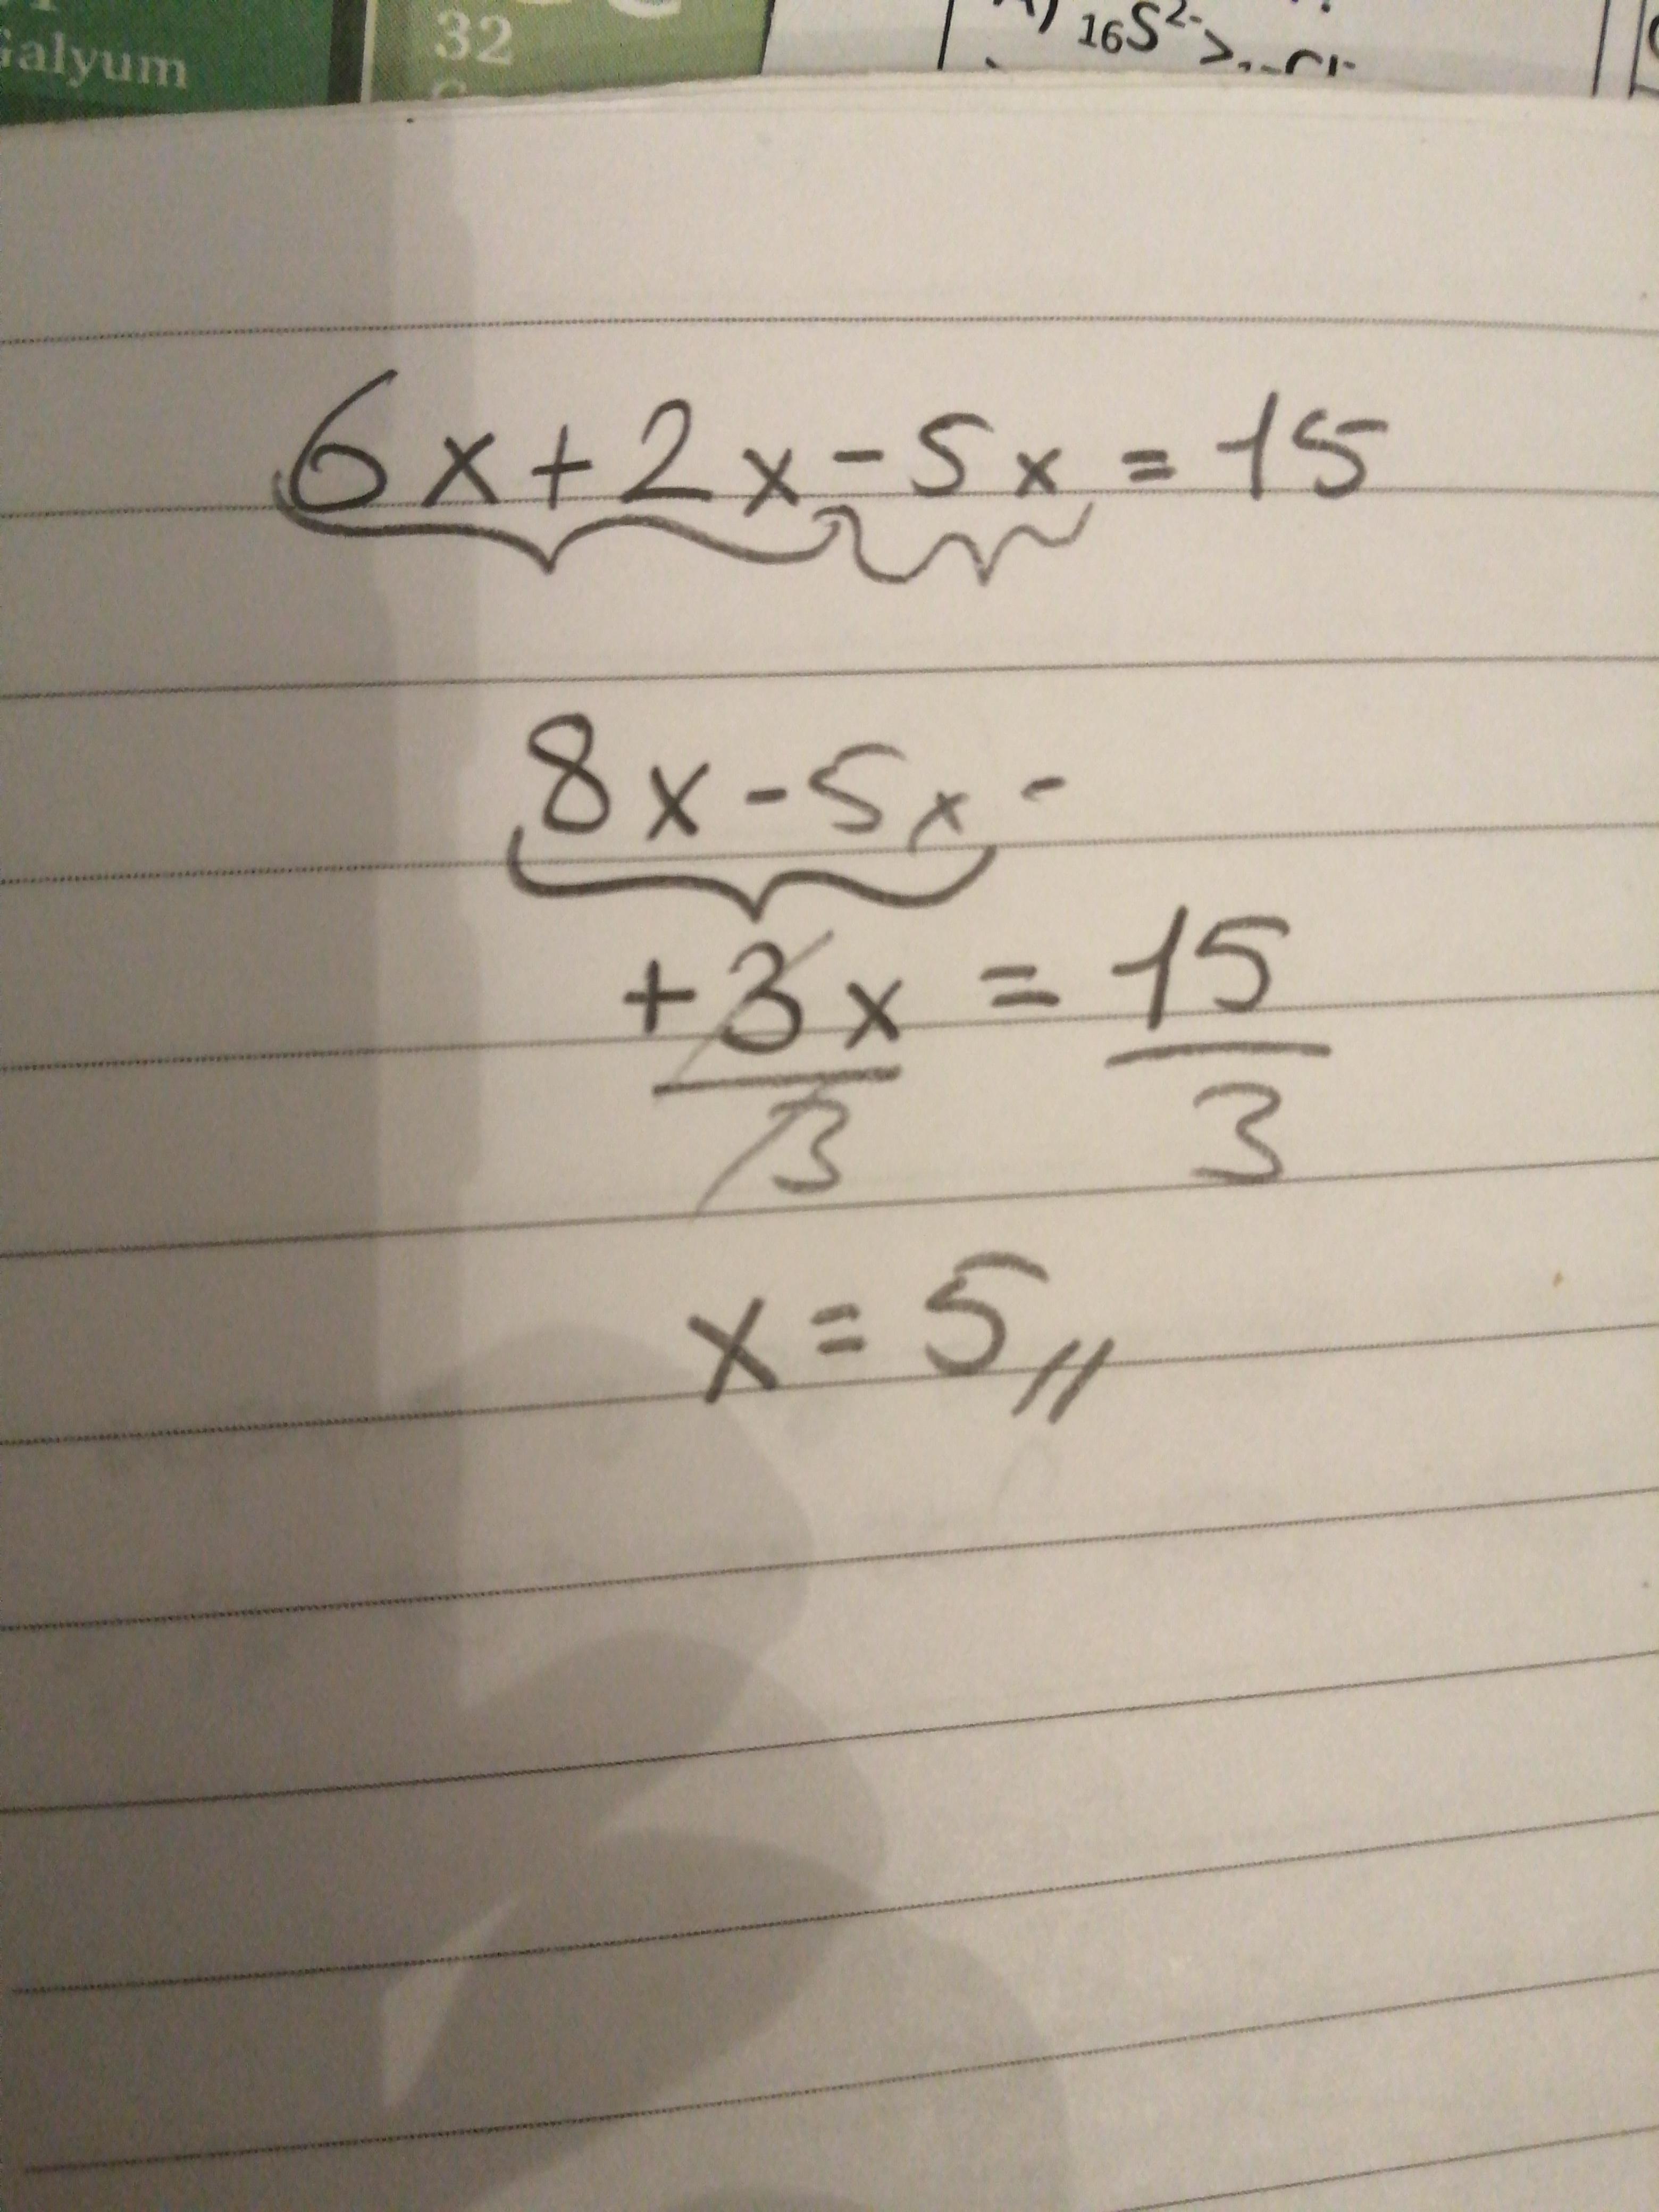 Galyum
32
16S2-
6x+2x-5x=15
8x-5x-
+3x = 15
3 3
x=5//